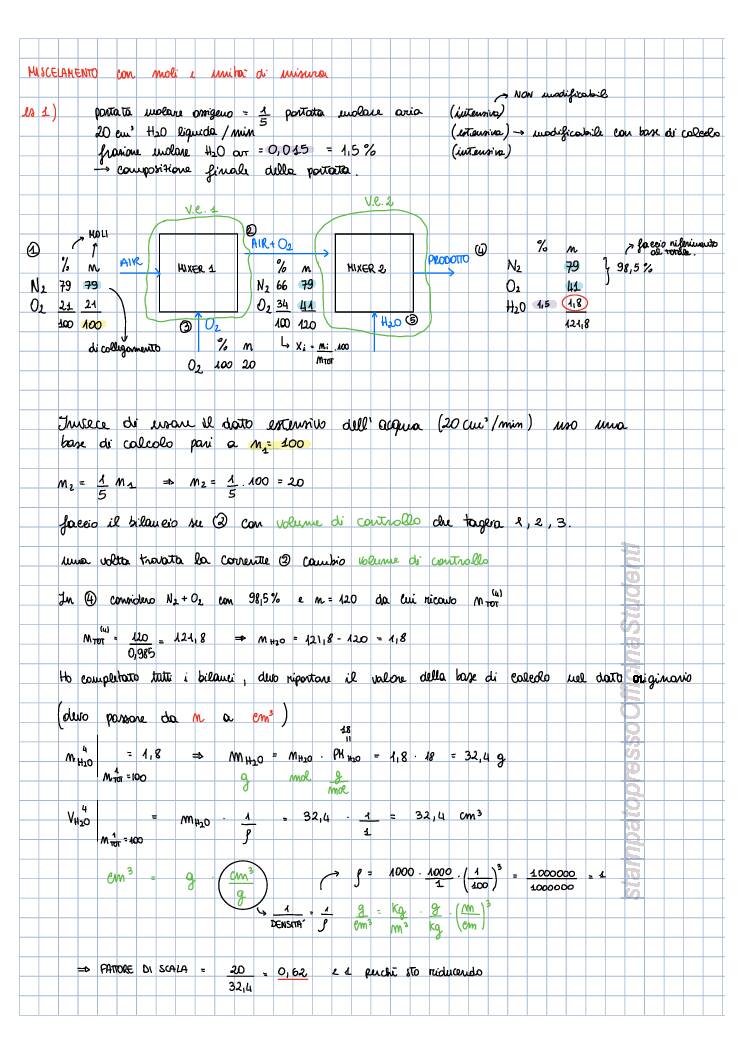 MISCELAMENTO con moli e unità di misura
→ NON modificabili
es 1) portata molare ossigeno = 1/5 portata molare aria (intensiva)
20 cm³ H2O liquida / min (estensiva) → modificabile con base di calcolo
frazione molare H2O out = 0,015 = 1,5 % (intensiva)
→ composizione finale della portata.
V.C. 1
V.C. 2
① MOLI
% n
N2 79 79
O2 21 21
100 100
di collegamento
AIR
MIXER 1
③ O2
% n
O2 100 20
②
AIR + O2
% n
N2 66 79
O2 34 41
100 120
↳ Xi = ni/nTOT · 100
MIXER 2
H2O ⑤
PRODOTTO
④
% n
N2 79
O2 41
H2O 1,5 1,8
121,8
} 98,5 %
→ faccio riferimento al totale.
Invece di usare il dato estensivo dell' acqua (20 cm³/min) uso una
base di calcolo pari a n1 = 100
n2 = 1/5 n1 ⇒ n2 = 1/5 · 100 = 20
faccio il bilancio su ② con volume di controllo che taglia 1, 2, 3.
una volta trovata la corrente ② cambio volume di controllo
In ④ considero N2 + O2 con 98,5 % e n = 120 da cui ricavo nTOT(4)
nTOT(4) = 120/0,985 = 121,8 ⇒ nH2O = 121,8 - 120 = 1,8
Ho completato tutti i bilanci, devo riportare il valore della base di calcolo nel dato originario
(devo passare da n a cm³)
18
=
nH2O 4 | n1TOT = 100 = 1,8 ⇒ mH2O = nH2O · PMH2O = 1,8 · 18 = 32,4 g
g mol g/mol
VH2O 4 | n1TOT = 100 = mH2O · 1/ρ = 32,4 · 1/1 = 32,4 cm³
cm³ = g · cm³/g
→ ρ = 1000 · 1000/1 · (1/100)³ = 1000000/1000000 = 1
↳ 1/DENSITA' = 1/ρ
g/cm³ = kg/m³ · g/kg · (m/cm)³
⇒ FATTORE DI SCALA = 20/32,4 = 0,62 < 1 perchè sto riducendo
stampatopressoOfficinaStudenti